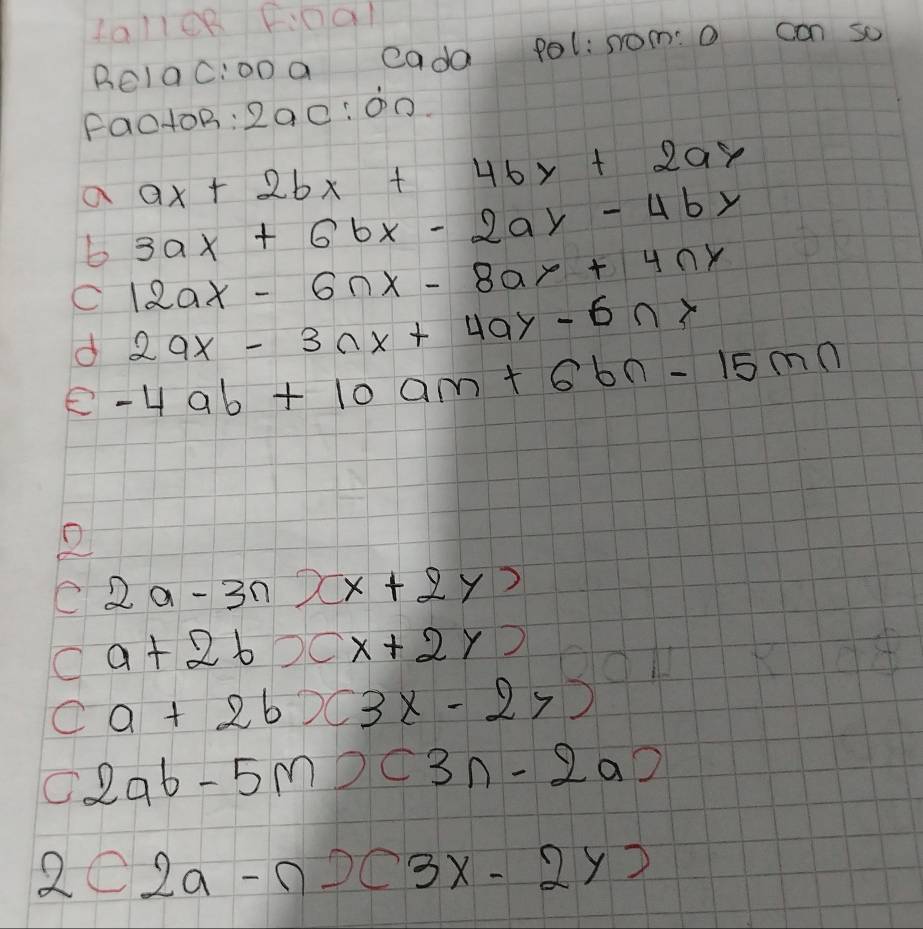 tallER Final
Relaciona cada polinomio con so
FactoRizacion.
a ax + 2bx + 4by + 2ay
b 3ax + 6bx - 2ay - 4by
c 12ax - 6nx - 8ay + 4ny
d 2ax - 3nx + 4ay - 6ny
e -4ab + 10am + 6bn - 15mn
2
(2a - 3n)(x + 2y)
(a + 2b)(x + 2y)
(a + 2b)(3x - 2y)
(2ab - 5m)(3n - 2a)
2(2a - n)(3x - 2y)